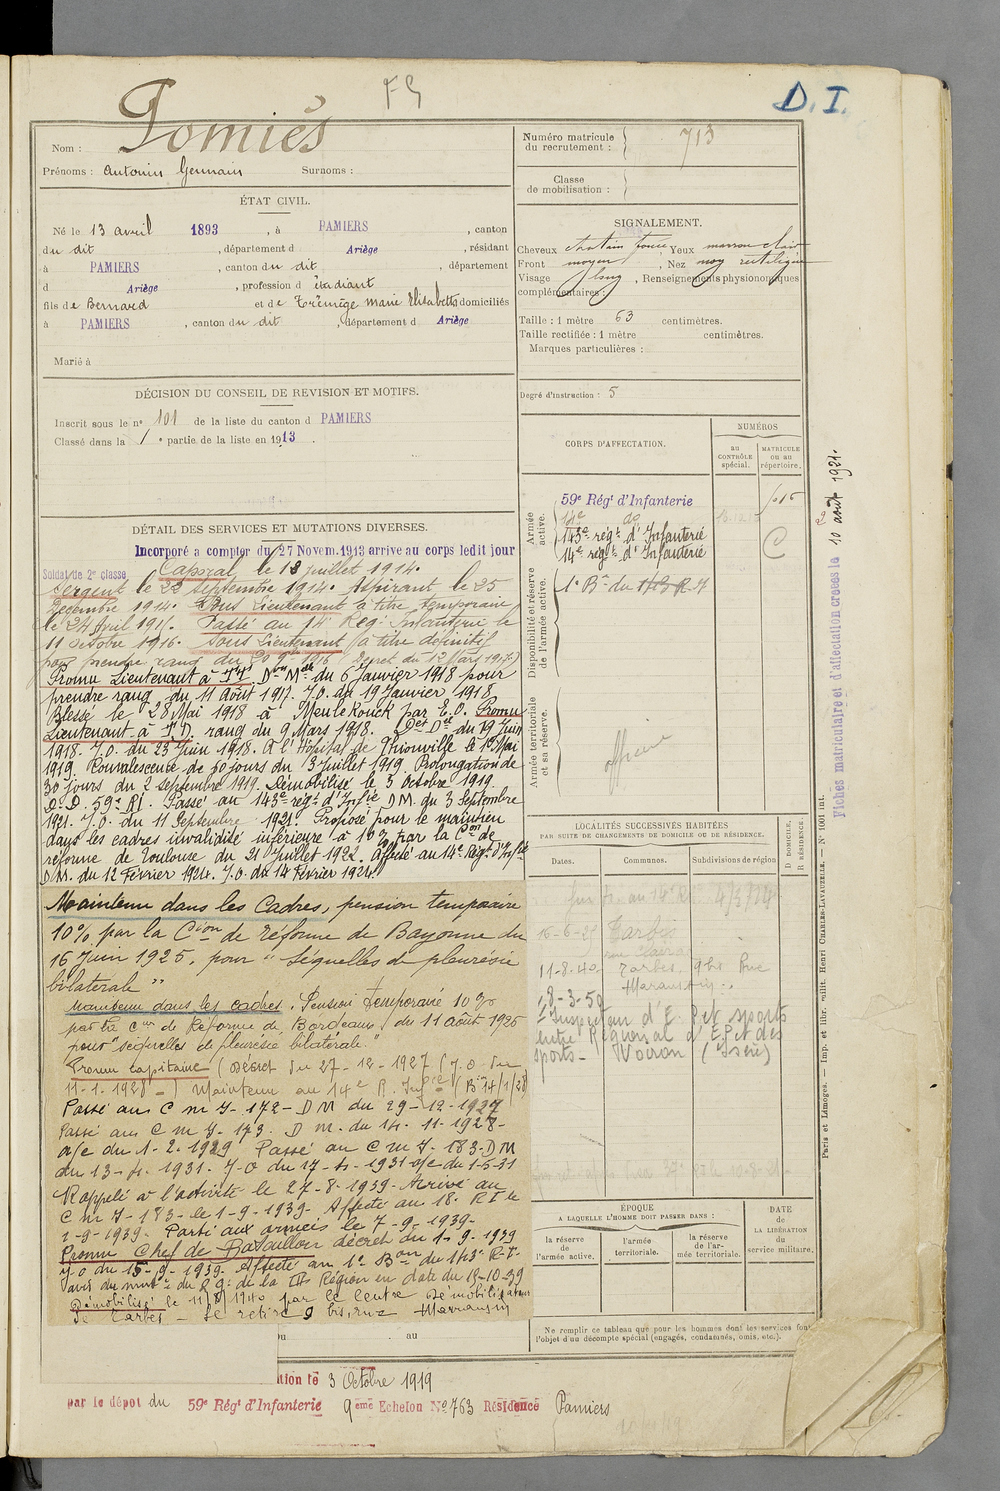 F G
D. I.
Nom : Pomiès
Prénoms : Antonin Germain Surnoms :
ÉTAT CIVIL.
Né le 13 avril 1893, à PAMIERS, canton
du dit, département d Ariège, résidant
à PAMIERS, canton du dit, département
d Ariège, profession d étudiant
fils de Bernard et de Trémège Marie Elisabeth domiciliés
à PAMIERS, canton du dit, département d Ariège
Marié à
DÉCISION DU CONSEIL DE REVISION ET MOTIFS.
Inscrit sous le n° 101 de la liste du canton d PAMIERS
Classé dans la 1e partie de la liste en 1913.
DÉTAIL DES SERVICES ET MUTATIONS DIVERSES.
Incorporé a compter du 27 Novem. 1913 arrive au corps ledit jour
Soldat de 2e classe Caporal le 18 juillet 1914.
Sergent le 22 septembre 1914. Aspirant le 25
Décembre 1914. Sous Lieutenant à titre temporaire
le 24 Avril 1915. Passé au 14e Reg. Infanterie le
11 octobre 1916. Sous Lieutenant (à titre définitif
pour prendre rang du 20 1916 Décret du 12 Mars 1917)
Promu Lieutenant à T.T. Don Mlle du 6 Janvier 1918 pour
prendre rang du 11 Août 1917. J.O. du 19 Janvier 1918
Blessé le 28 Mai 1918 à par E.O. Promu
Lieutenant à T.D. rang du 9 Mars 1918. Dt du 19 Juin
1918. J.O. du 23 Juin 1918. A l'Hôpital de Thionville le 1er Mai
1919. Convalescence de 30 jours du 3 Juillet 1919. Prolongation de
30 jours du 2 Septembre 1919. Démobilisé le 3 Octobre 1919.
D.D. 59e RI. Passé au 143e régt d'Infie DM. du 3 Septembre
1921. J.O. du 11 Septembre 1921. Proposé pour le maintien
dans les cadres invalidité inférieure à 10% par la Con de
réforme de Toulouse du 21 Juillet 1922. Affecté au 14e Régt d'Infie
DM. du 12 Février 1924. J.O. du 14 Février 1924.
Maintenu dans les Cadres, pension temporaire
10% par la Cion de Réforme de Bayonne du
16 Juin 1925, pour "Séquelles de pleurésie
bilatérale"
Maintenu dans les cadres. Pension temporaire 10%
par la Con de Réforme de Bordeaux du 11 Août 1925
pour "séquelles de pleurésie bilatérale."
Promu Capitaine (Décret du 27-12-1927 (J.O. du
11-1-1928-) Maintenu au 14e R. Infie (Bn 14/1/28
Passé au C m I-172- DM du 29-12-1927
Passé au C m I-173. D.M. du 14-11-1928-
a/c du 1-2-1929 Passé au C m I-183-DM
du 13-4-1931. J-O du 17-4-1931 a/c du 1-5-31
Rappelé à l'activité le 27-8-1939- Arrivé au
C M I-183-le 1-9-1939. Affecté au 18. RI le
1-9-1939- Parti aux armées le 7-9-1939-
Promu Chef de Bataillon décret du 1-9-1939
J-O du 15-9-1939. Affecté au 1er Bon du 143e R-I-
avis de mutn du R.G. de la Région en date du 18-10-39
Démobilisé le 11/8/1940 par le Centre Démobilisateur
de Tarbes - Se retire 9 bis, rue Marransin
Du au
Numéro matricule du recrutement : 713
Classe de mobilisation :
SIGNALEMENT.
Cheveux chatain foncé, Yeux marron clair
Front moyen, Nez moy rectiligne
Visage long, Renseignements physionomiques
complémentaires :
Taille : 1 mètre 63 centimètres.
Taille rectifiée : 1 mètre centimètres.
Marques particulières :
Degré d'instruction : 5
CORPS D'AFFECTATION.
NUMÉROS
au CONTRÔLE spécial.
MATRICULE ou au répertoire.
Armée active.
59e Régt d'Infanterie
14e do
143e régt d'Infanterie
14e regt d'Infanterie
C
Disponibilité et réserve de l'armée active.
1er Bn du 143 R.I
Armée territoriale et sa réserve.
officier
Fiches matriculaire et d'affectation créées le 10 août 1921.
LOCALITÉS SUCCESSIVES HABITÉES
PAR SUITE DE CHANGEMENTS DE DOMICILE OU DE RÉSIDENCE.
Dates. Communes. Subdivisions de région
D DOMICILE, R RÉSIDENCE.
16-6-25 Tarbes
11-8-40 Tarbes, 9 bis Rue
Marransin.
18-3-59
Inspection d'E.P. et sports
Centre Régional d'E.P. et des
sports- Voiron (Isère)
ÉPOQUE
A LAQUELLE L'HOMME DOIT PASSER DANS :
la réserve de l'armée active.
l'armée territoriale.
la réserve de l'armée territoriale.
DATE DE LA LIBÉRATION du service militaire.
Ne remplir ce tableau que pour les hommes dont les services font
l'objet d'un décompte spécial (engagés, condamnés, omis, etc.).
Paris et Limoges. — Imp. et libr. milit. Henri CHARLES-LAVAUZELLE. — N° 1001 int.
ation le 3 Octobre 1919
par le dépot du 59e Régt d'Infanterie 9eme Echelon N° 763 Résidence Pamiers